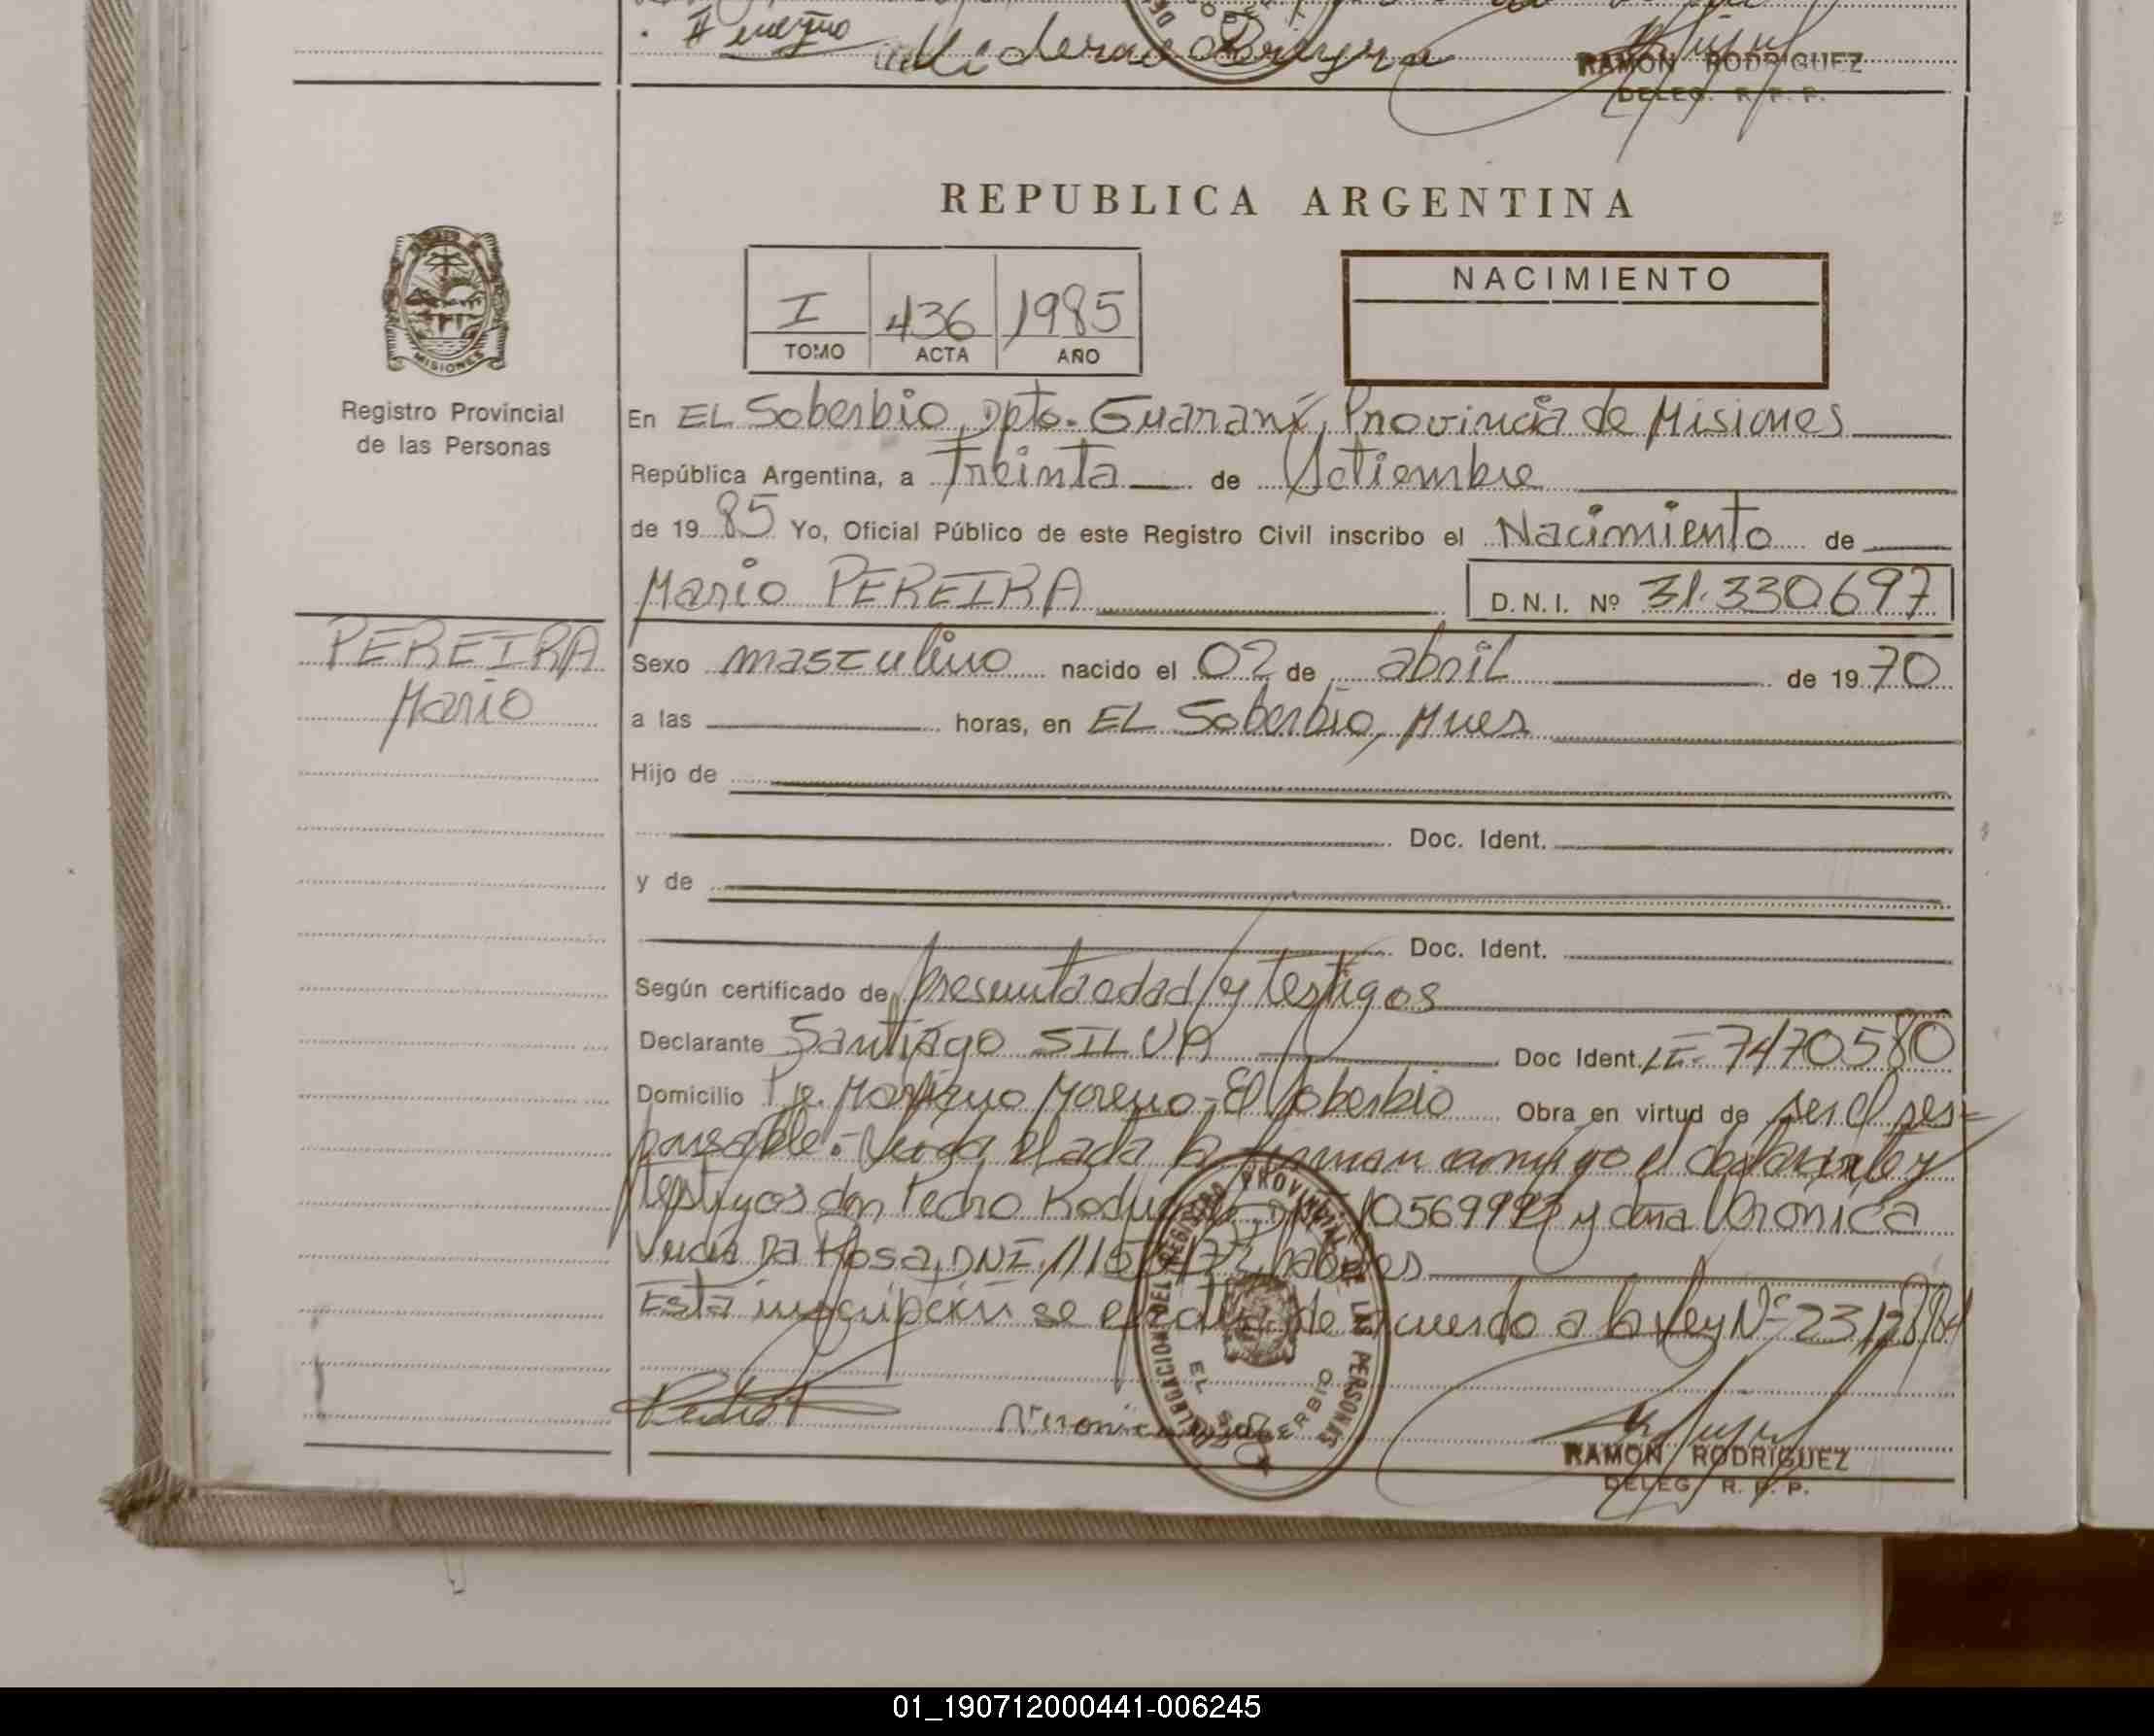 RAMON RODRIGUEZ
DELEG. R. P. P.
REPUBLICA ARGENTINA
I 436 1985
TOMO ACTA AÑO
NACIMIENTO
MISIONES
Registro Provincial
de las Personas
En EL Soberbio, Dpto. Guaraní, Provincia de Misiones
República Argentina, a Treinta de Setiembre
de 1985 Yo, Oficial Público de este Registro Civil inscribo el Nacimiento de
Mario PEREIRA D.N.I. Nº 31.330.697
PEREIRA
Mario
Sexo masculino nacido el 02 de abril de 1970
a las horas, en EL Soberbio, Mnes
Hijo de
Doc. Ident.
y de
Doc. Ident.
Según certificado de presunta edad y testigos
Declarante Santiago SILVA Doc Ident. LE- 7470580
Domicilio Pje. Mariano Moreno- El Soberbio Obra en virtud de ser el res-
ponsable.- Leida el acta la firman conmigo el declarante y
testigos don Pedro 10569993 y doña Verónica
Da Rosa, DNI. habiles
Esta inscripción se efectua de acuerdo a la Ley Nº 23128/84
DELEGACION DEL REGISTRO PROVINCIAL DE LAS PERSONAS
EL SOBERBIO
Pedro
RAMON RODRIGUEZ
DELEG. R. P. P.
01_190712000441-006245